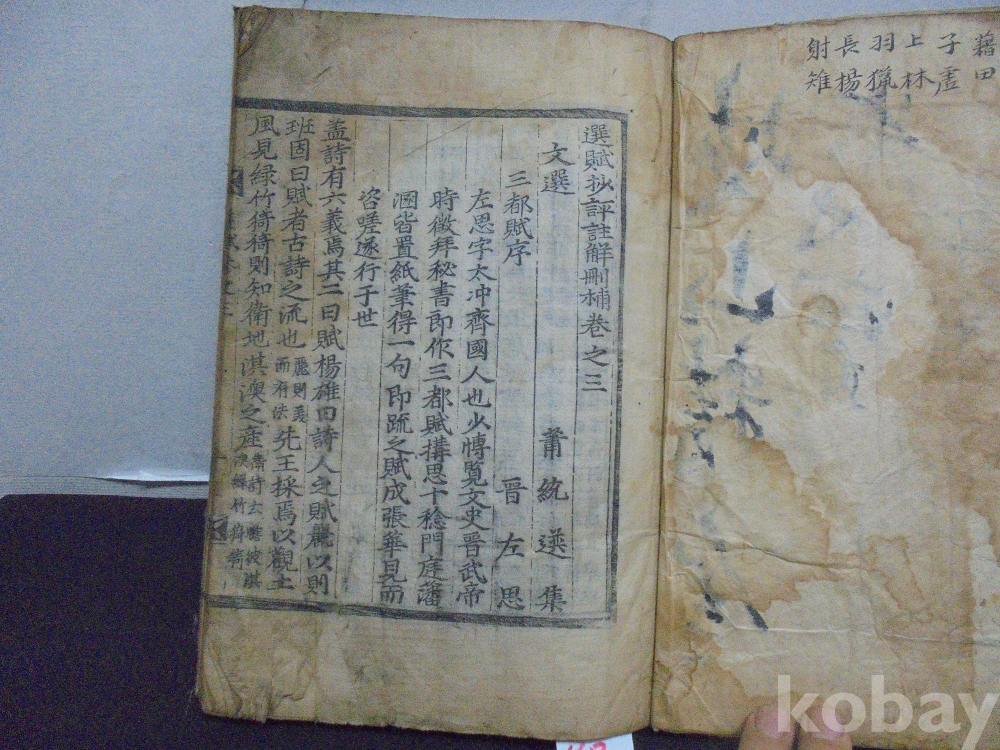 藉田
子虛
上林
羽獵
長楊
射雉
選賦抄評註解刪補卷之三
文選 蕭統選集
三都賦序 晉左思
左思字太冲齊國人也少博覽文史晉武帝
時徵拜秘書即作三都賦搆思十稔門庭藩
溷皆置紙筆得一句即疏之賦成張華見而
咨嗟遂行于世
盖詩有六義焉其二曰賦楊雄曰詩人之賦麗以則
班固曰賦者古詩之流也麗則美而有法先王採焉以觀土
風見緑竹猗猗則知衛地淇澳之産衛詩云瞻彼淇澳緑竹猗猗
kobay